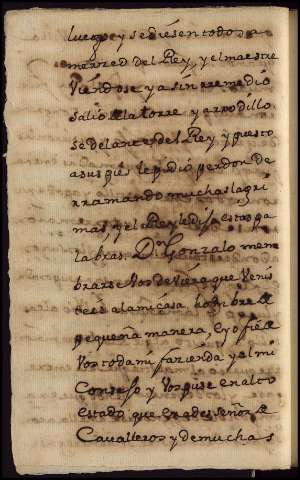 luego y se diesen todo a
merzed del Rey, y el maestre
Viendose ya sin remedio
salio de la torre y arrodillo
se delante del Rey y puesto
a sus pies le pidio perdon de
rramando muchas lagri
mas, y el Rey le dijo estas pa
labras. Dn Gonzalo mem
brarse vos deviera que venis
teis a la mi casa hombre de
pequeña manera, E yo fie de
Vos toda mi fazienda y el mi
Consejo y Vos puse en alto
Estado que Erades señor de
Cavalleros y de muchas